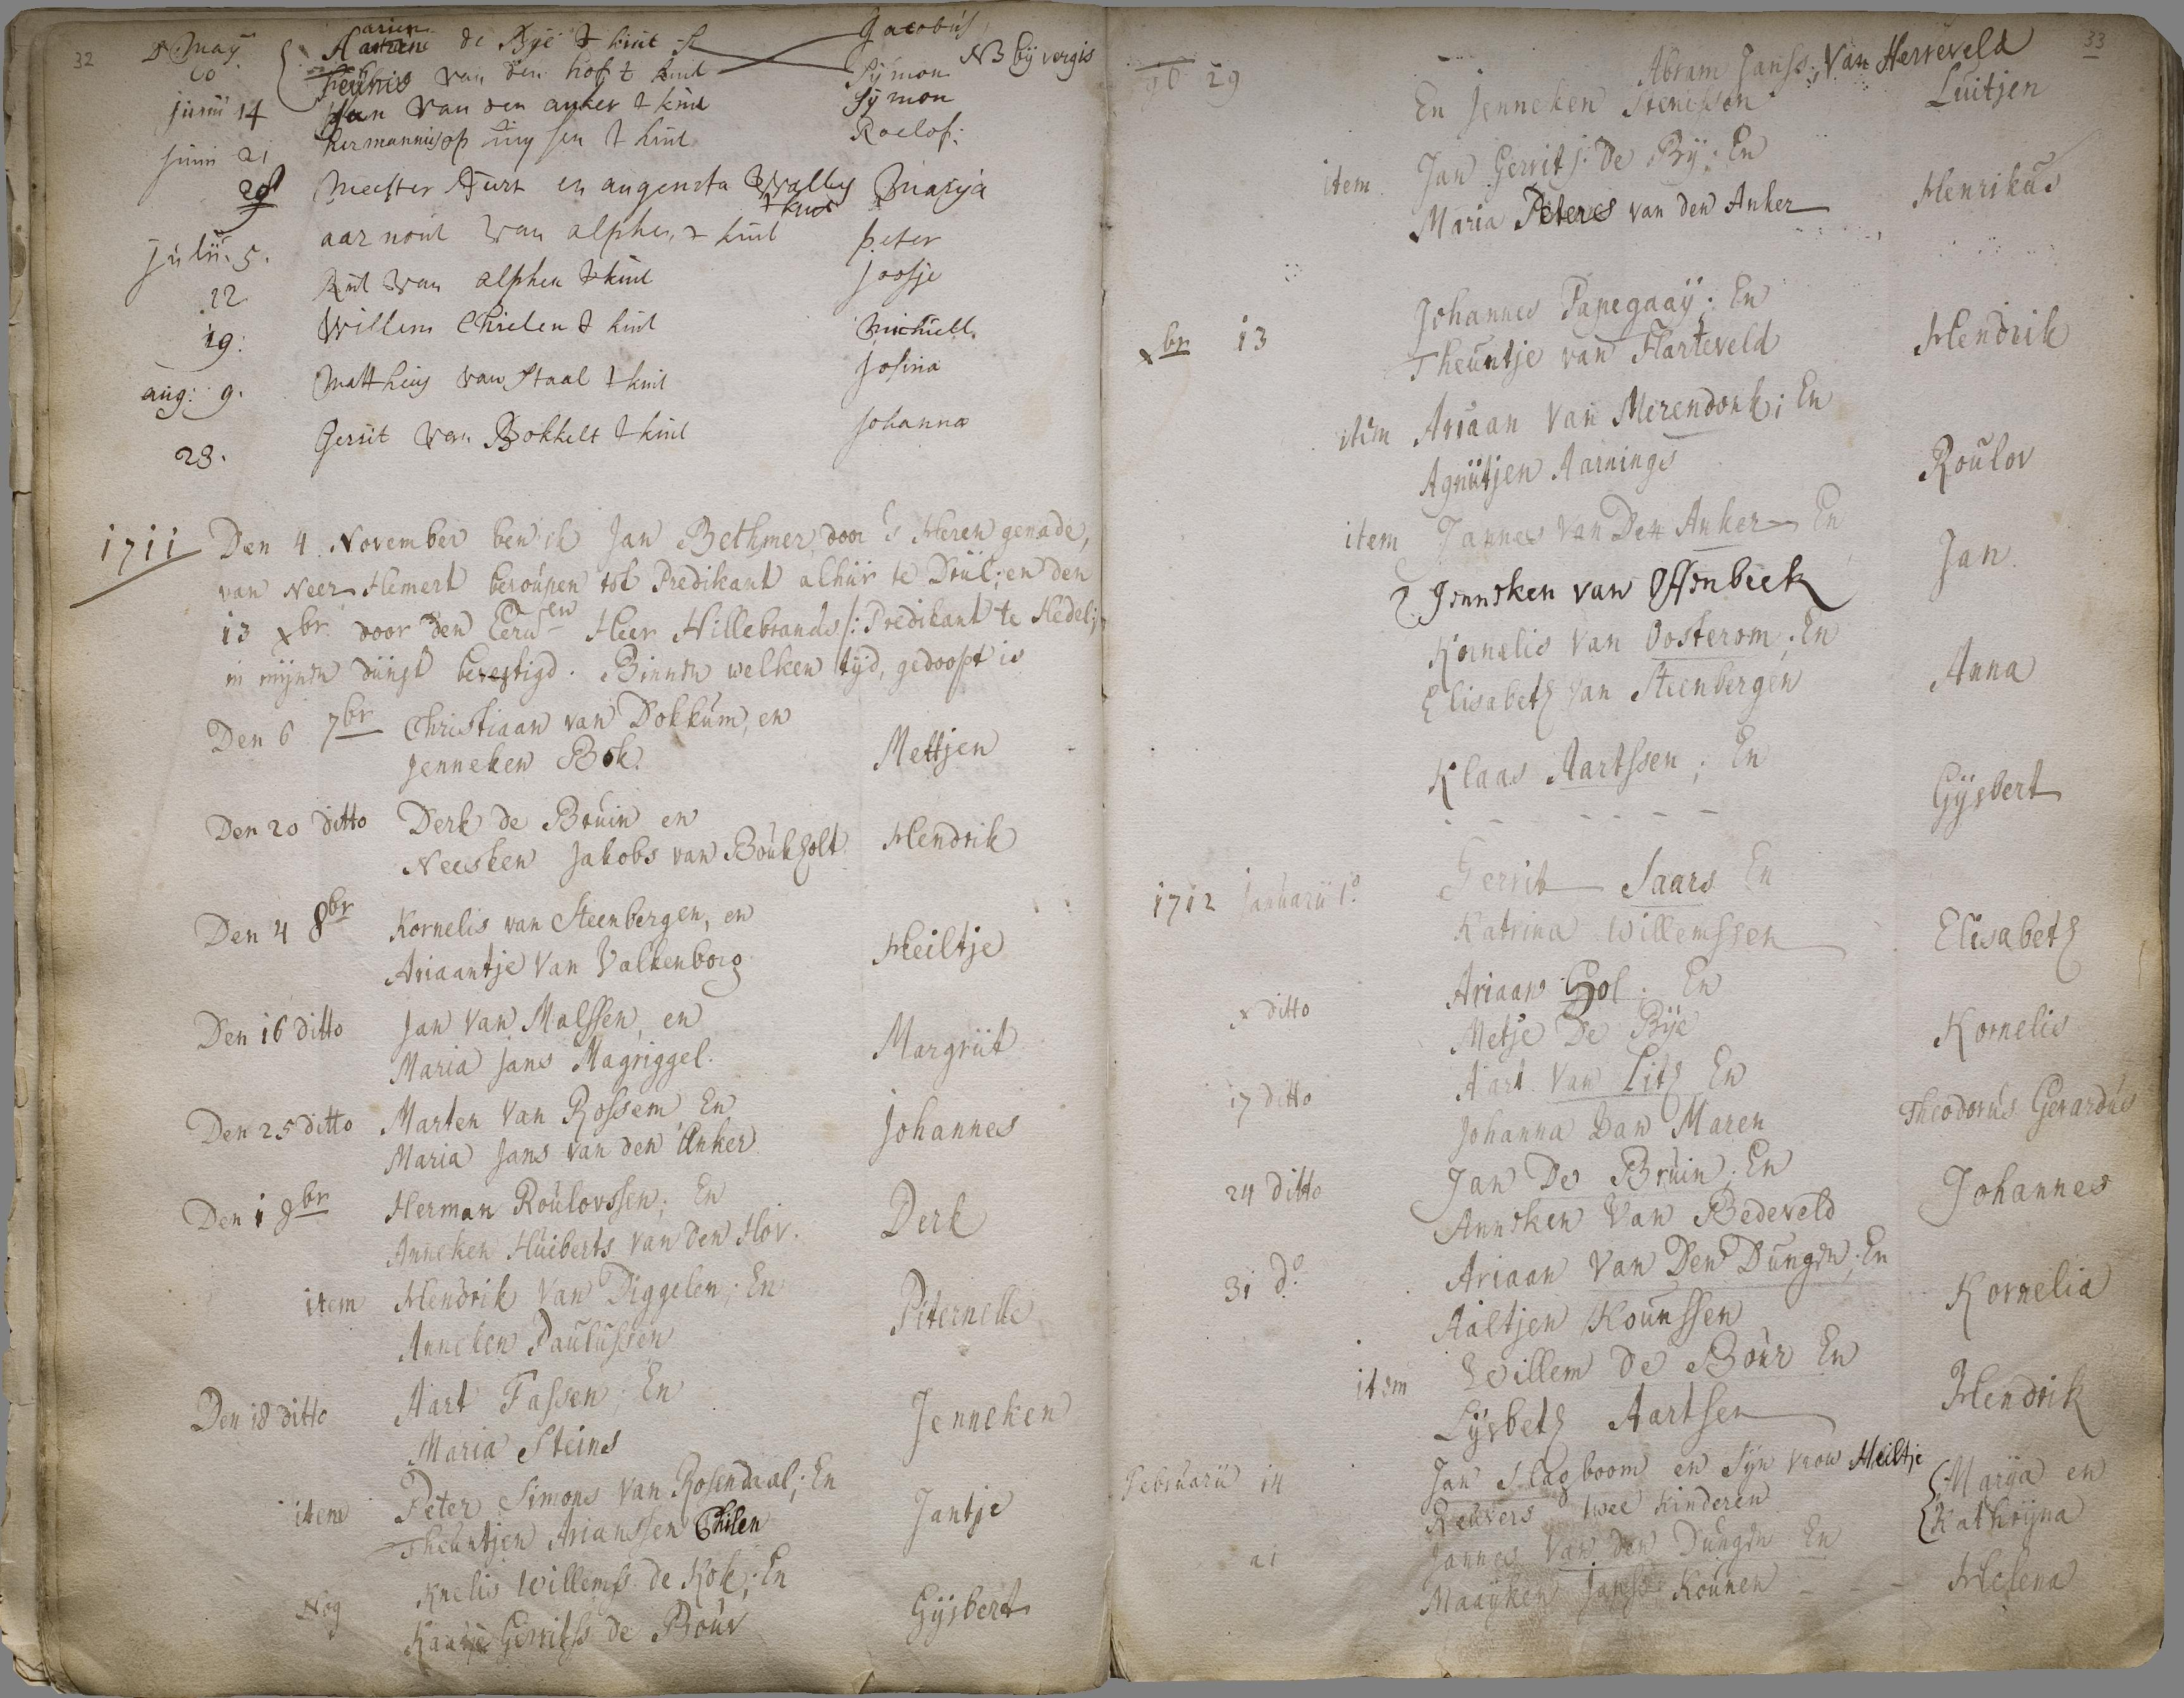 32
May
de Bye t kint
Jacobus
NB by vergis
van den hof t kint
Symon
Junii 14
Jan van den anker t kint
Symon
Junii 21
t kint
Roelof:
28
Meester en
t kint
Marija
Julii. 5.
aarnout van alphen t kint
peter
12
Rut van alphen t kint
Joosje
19:
Willem Chielen t kint
Michiell.
aug: 9.
Mattheus van Staal t kint
Josina
23.
Gerrit van Bokkelt t kint
Johanna
1711
Den 4 November ben ik Jan Bethmer, door 's Heren genade,
van Neer-Hemert beroupen tot Predikant alhiir te Driil; en den
13 xbr door den Eerwen Heer Hillebrands /: Predikant te Hedel:/
in mijnen diinst bevestigd. Binnen welken tijd, gedoopt is
Den 6 7br Christiaan van Dokkum, en
Jenneken Bok.
Mettjen
Den 20 ditto Derk de Bruin en
Neesken Jakobs van Boukholt
Hendrik
Den 4 8br Kornelis van Steenbergen, en
Ariaantje Van Valkenborg
Heiltje
Den 16 ditto Jan Van Malssen, en
Maria Jans Magriggel.
Margriit
Den 25 ditto Marten Van Rossem, En
Maria Jans van den Anker
Johannes
Den 1 9br Herman Roulovssen; En
Anneken Huiberts van den Hov.
Derk
item Hendrik Van Diggelen; En
Anneken Paulussen
Piternelle
Den 18 ditto Aart Fassen; En
Maria Steins
Jenneken
item Peter Simons Van Rosendaal; En
Theuntjen Arianssen Chilen
Jantje
Nog Knelis Willemss de Kok; En
Kaatje Gerritss de Bour
Gijsbert
33
29
Abram Janss; Van Herreveld
En Jenneken
Luitjen
item Jan Gerrits: De Bij; En
Maria Peters van den Anker
Henrikus
xbr 13
Johannes Papegaaij; En
Theuntje van Harteveld
Hendrik
item Ariaan Van Merendonk; En
Agniitjen Aarnings
Roulov
item Jannes Van Den Anker En
Jenneken van Offenbeek
Jan
Kornelis Van Oosterom; En
Elisabeth Van Steenbergen
Anna
Klaas Aartssen; En
- - - - - -
Gijsbert
1712 Januarii 1o
Gerrit Saars En
Katrina Willemssen
Elisabeth
x ditto
Ariaan Hol; En
Metje De Bije
Kornelis
17 ditto
Aart Van Lith En
Johanna Van Maren
Theodorus Gerardus
24 ditto
Jan De Bruin; En
Anneken Van Bedeveld
Johannes
31 do
Ariaan Van Den Dungen; En
Aaltjen Kounssen
Kornelia
item Willem de Bour En
Lijsbeth Aartsen
Hendrik
Februarii 14
Jan Slagboom en Syn vrou Heiltje
Reuvers twee kinderen
Marija en
Kathrijna
21
Jannes Van den Dungen En
Maayken Janss: Kounen
Helena